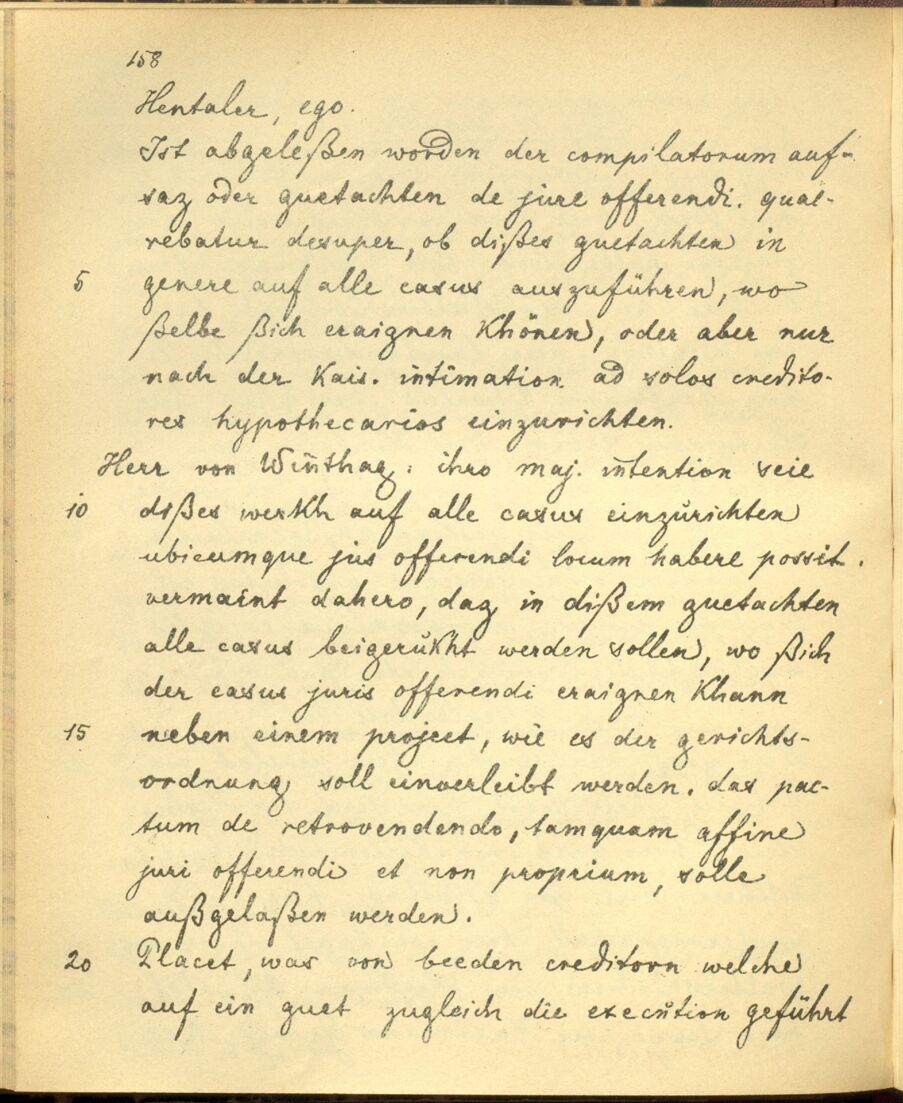 158
Hentaler, ego.
Ist abgeleßen worden der compilatorum auf-
saz oder guetachten de jure offerendi. quae-
rebatur desuper, ob dißes guetachten in
5 genere auf alle casus auszuführen, wo
ßelbe ßich eraignen khönen, oder aber nur
nach der kais. intimation ad solos credito-
res hypothecarios einzurichten.
Herr von Winthag: ihro maj. intention seie
10 dißes werkh auf alle casus einzurichten
ubicumque jus offerendi locum habere possit.
vermaint dahero, daz in dißem guetachten
alle casus beigerukht werden sollen, wo ßich
der casus juris offerendi eraignen khann
15 neben einem project, wie es der gerichts-
ordnung soll einverleibt werden. das pac-
tum de retrovendendo, tamquam affine
juri offerendi et non proprium, solle
außgelaßen werden.
20 Placet, was von beeden creditorn welche
auf ein guet zugleich die execution geführt